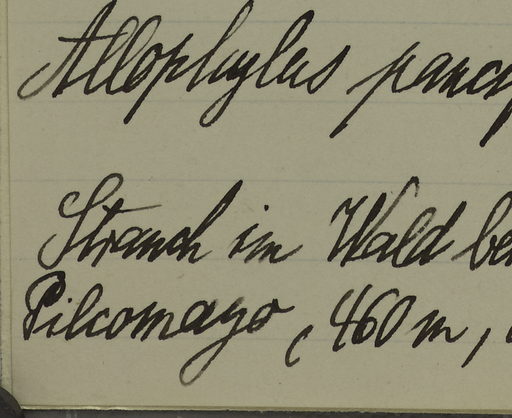 Allophylus pauc
Strauch im Wald be
Pilcomayo, 460 m,